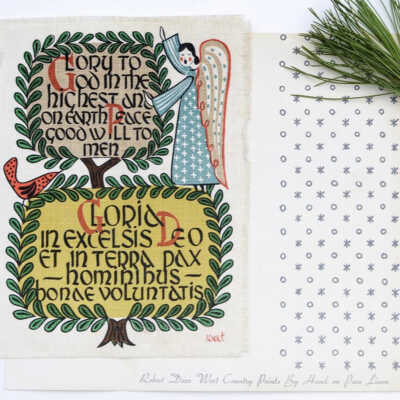 GLORY TO
GOD IN THE
highest and
ON EARTH PEACE
GOOD WILL TO
MEN
GLORIA
IN EXCELSIS DEO
ET IN TERRA PAX
— hominibus —
bonae voluntatis
Wert
Robert Darr Wert Country Prints By Hand on Pure Linen